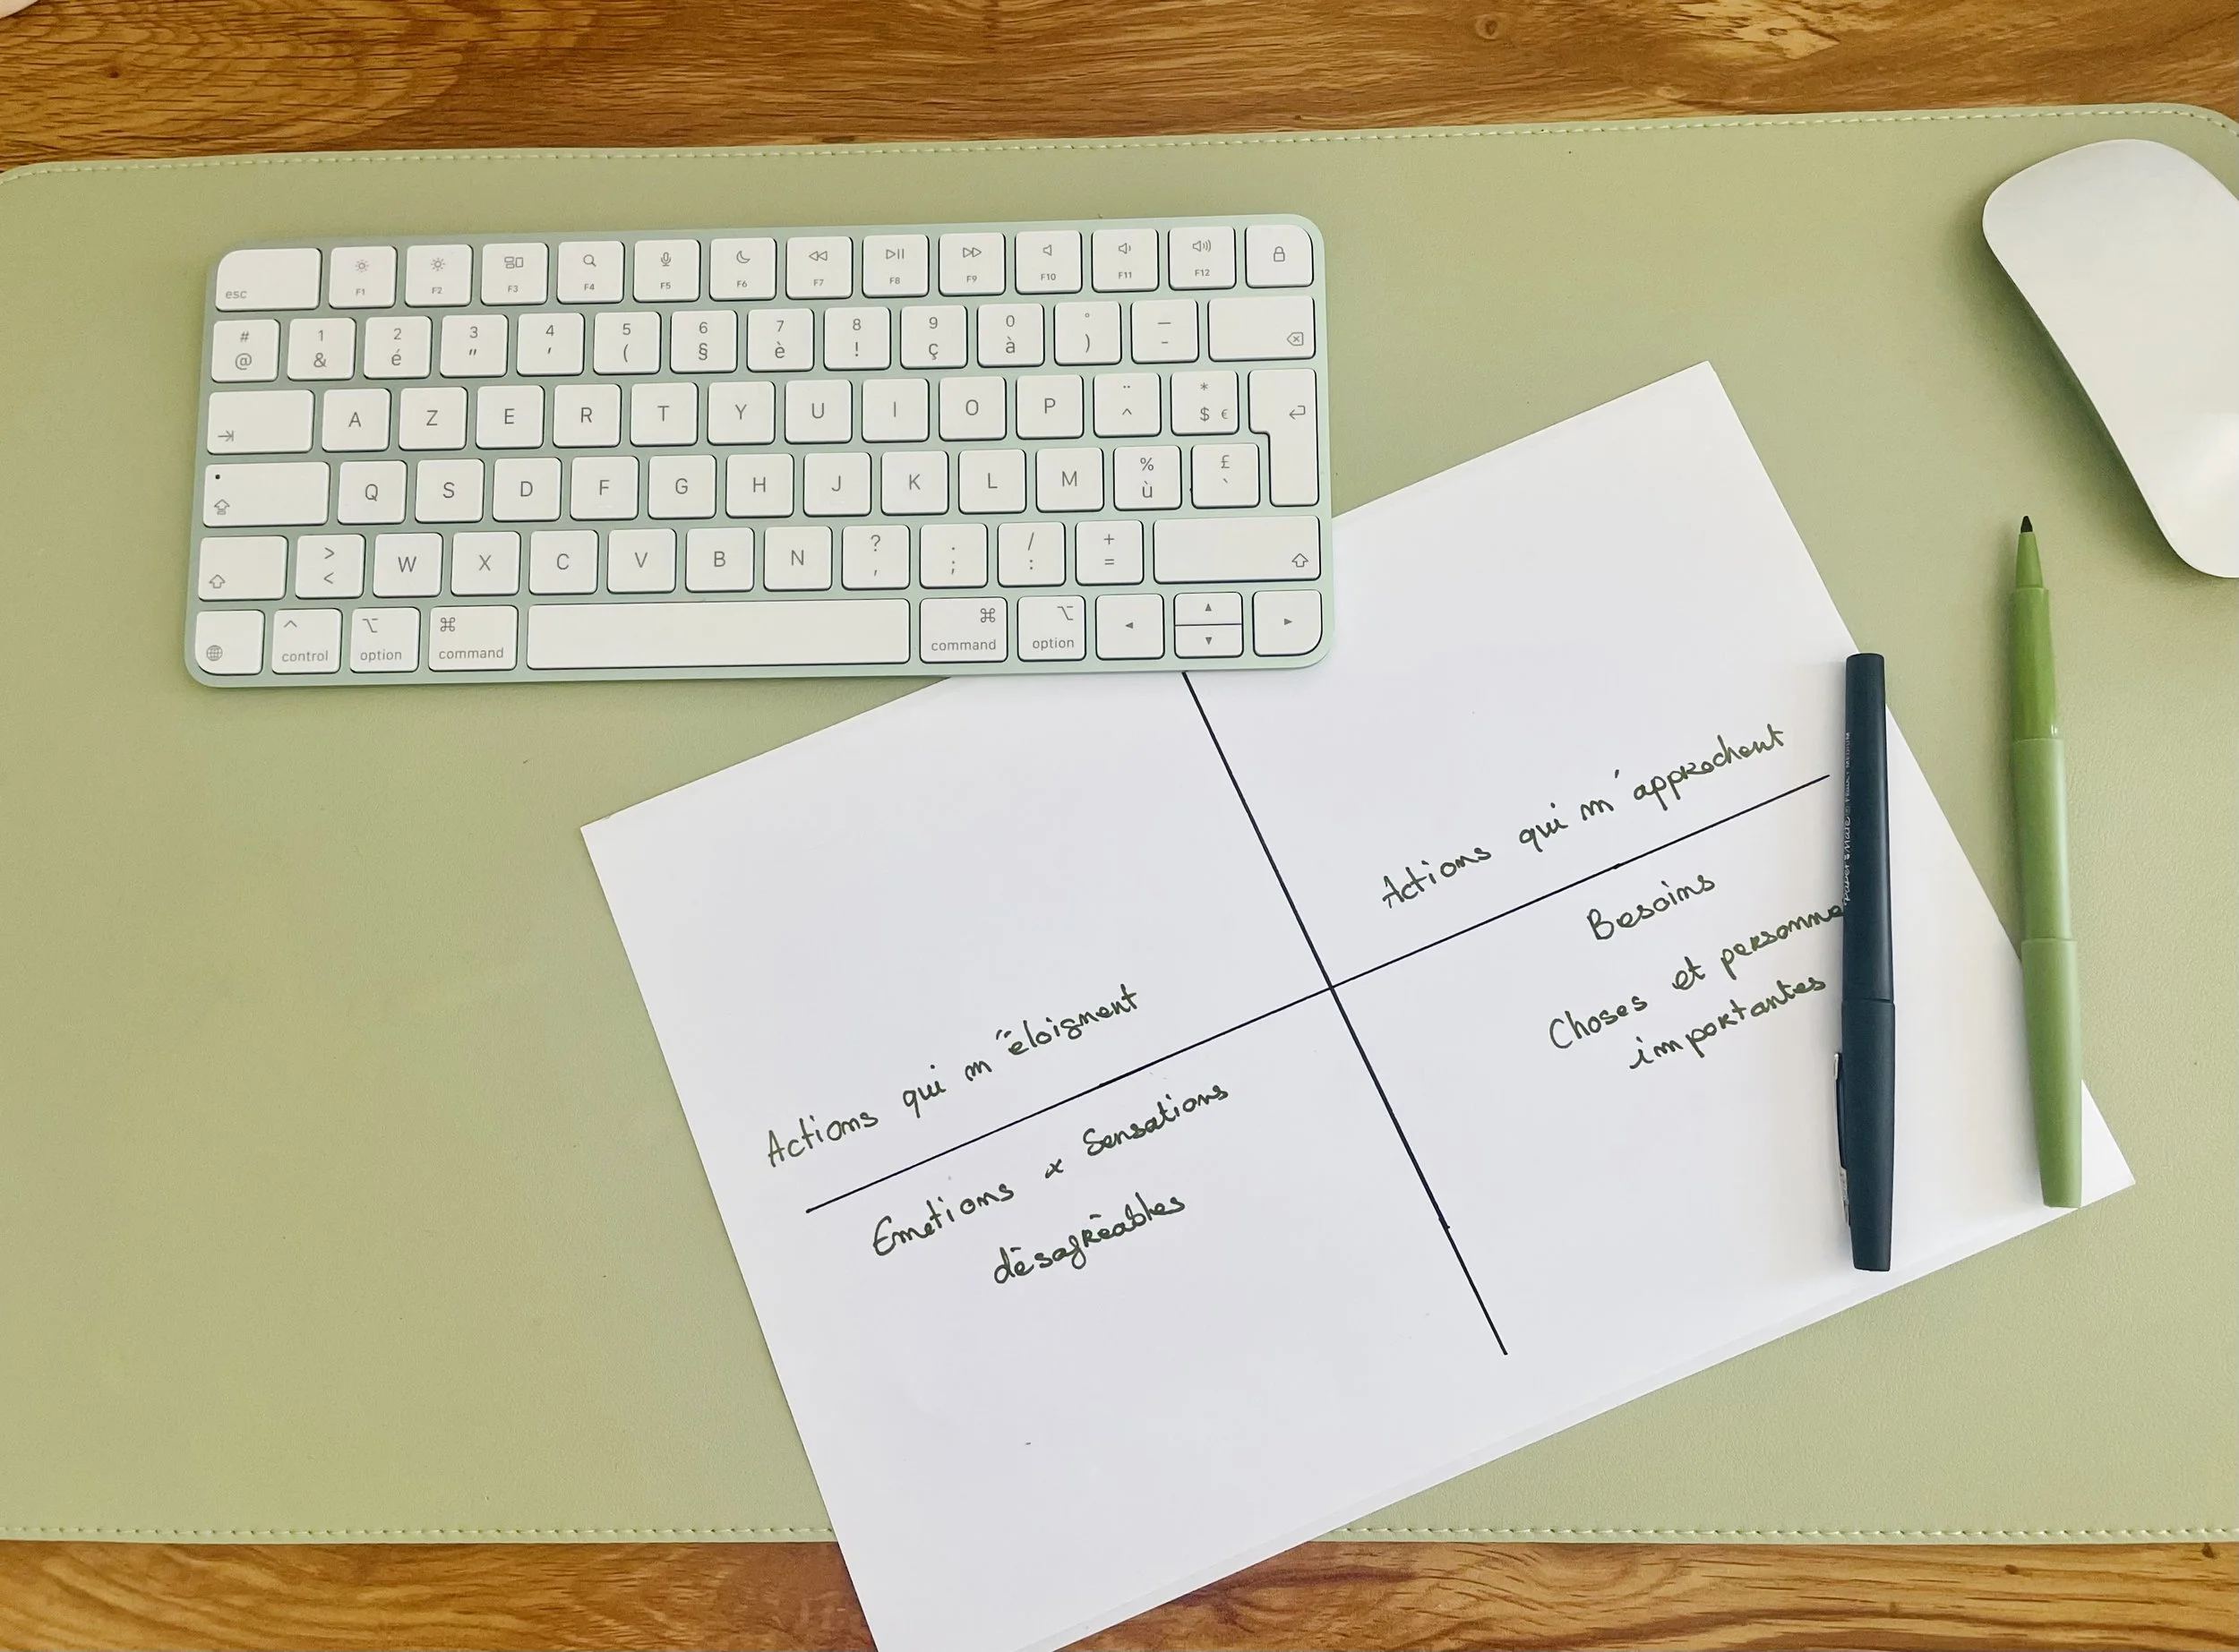 esc F1 F2 F3 F4 F5 F6 F7 F8 F9 F10 F11 F12
# 1 2 3 4 5 6 7 8 9 0 ° _
@ & é " ' ( § è ! ç à ) -
A Z E R T Y U I O P ¨ ^ * $ €
Q S D F G H J K L M % ù £ `
> < W X C V B N ? , . ; / : + =
control option command command option
Actions qui m'éloignent
Actions qui m'approchent
Emotions & Sensations
désagréables
Besoins
Choses et personne
importantes